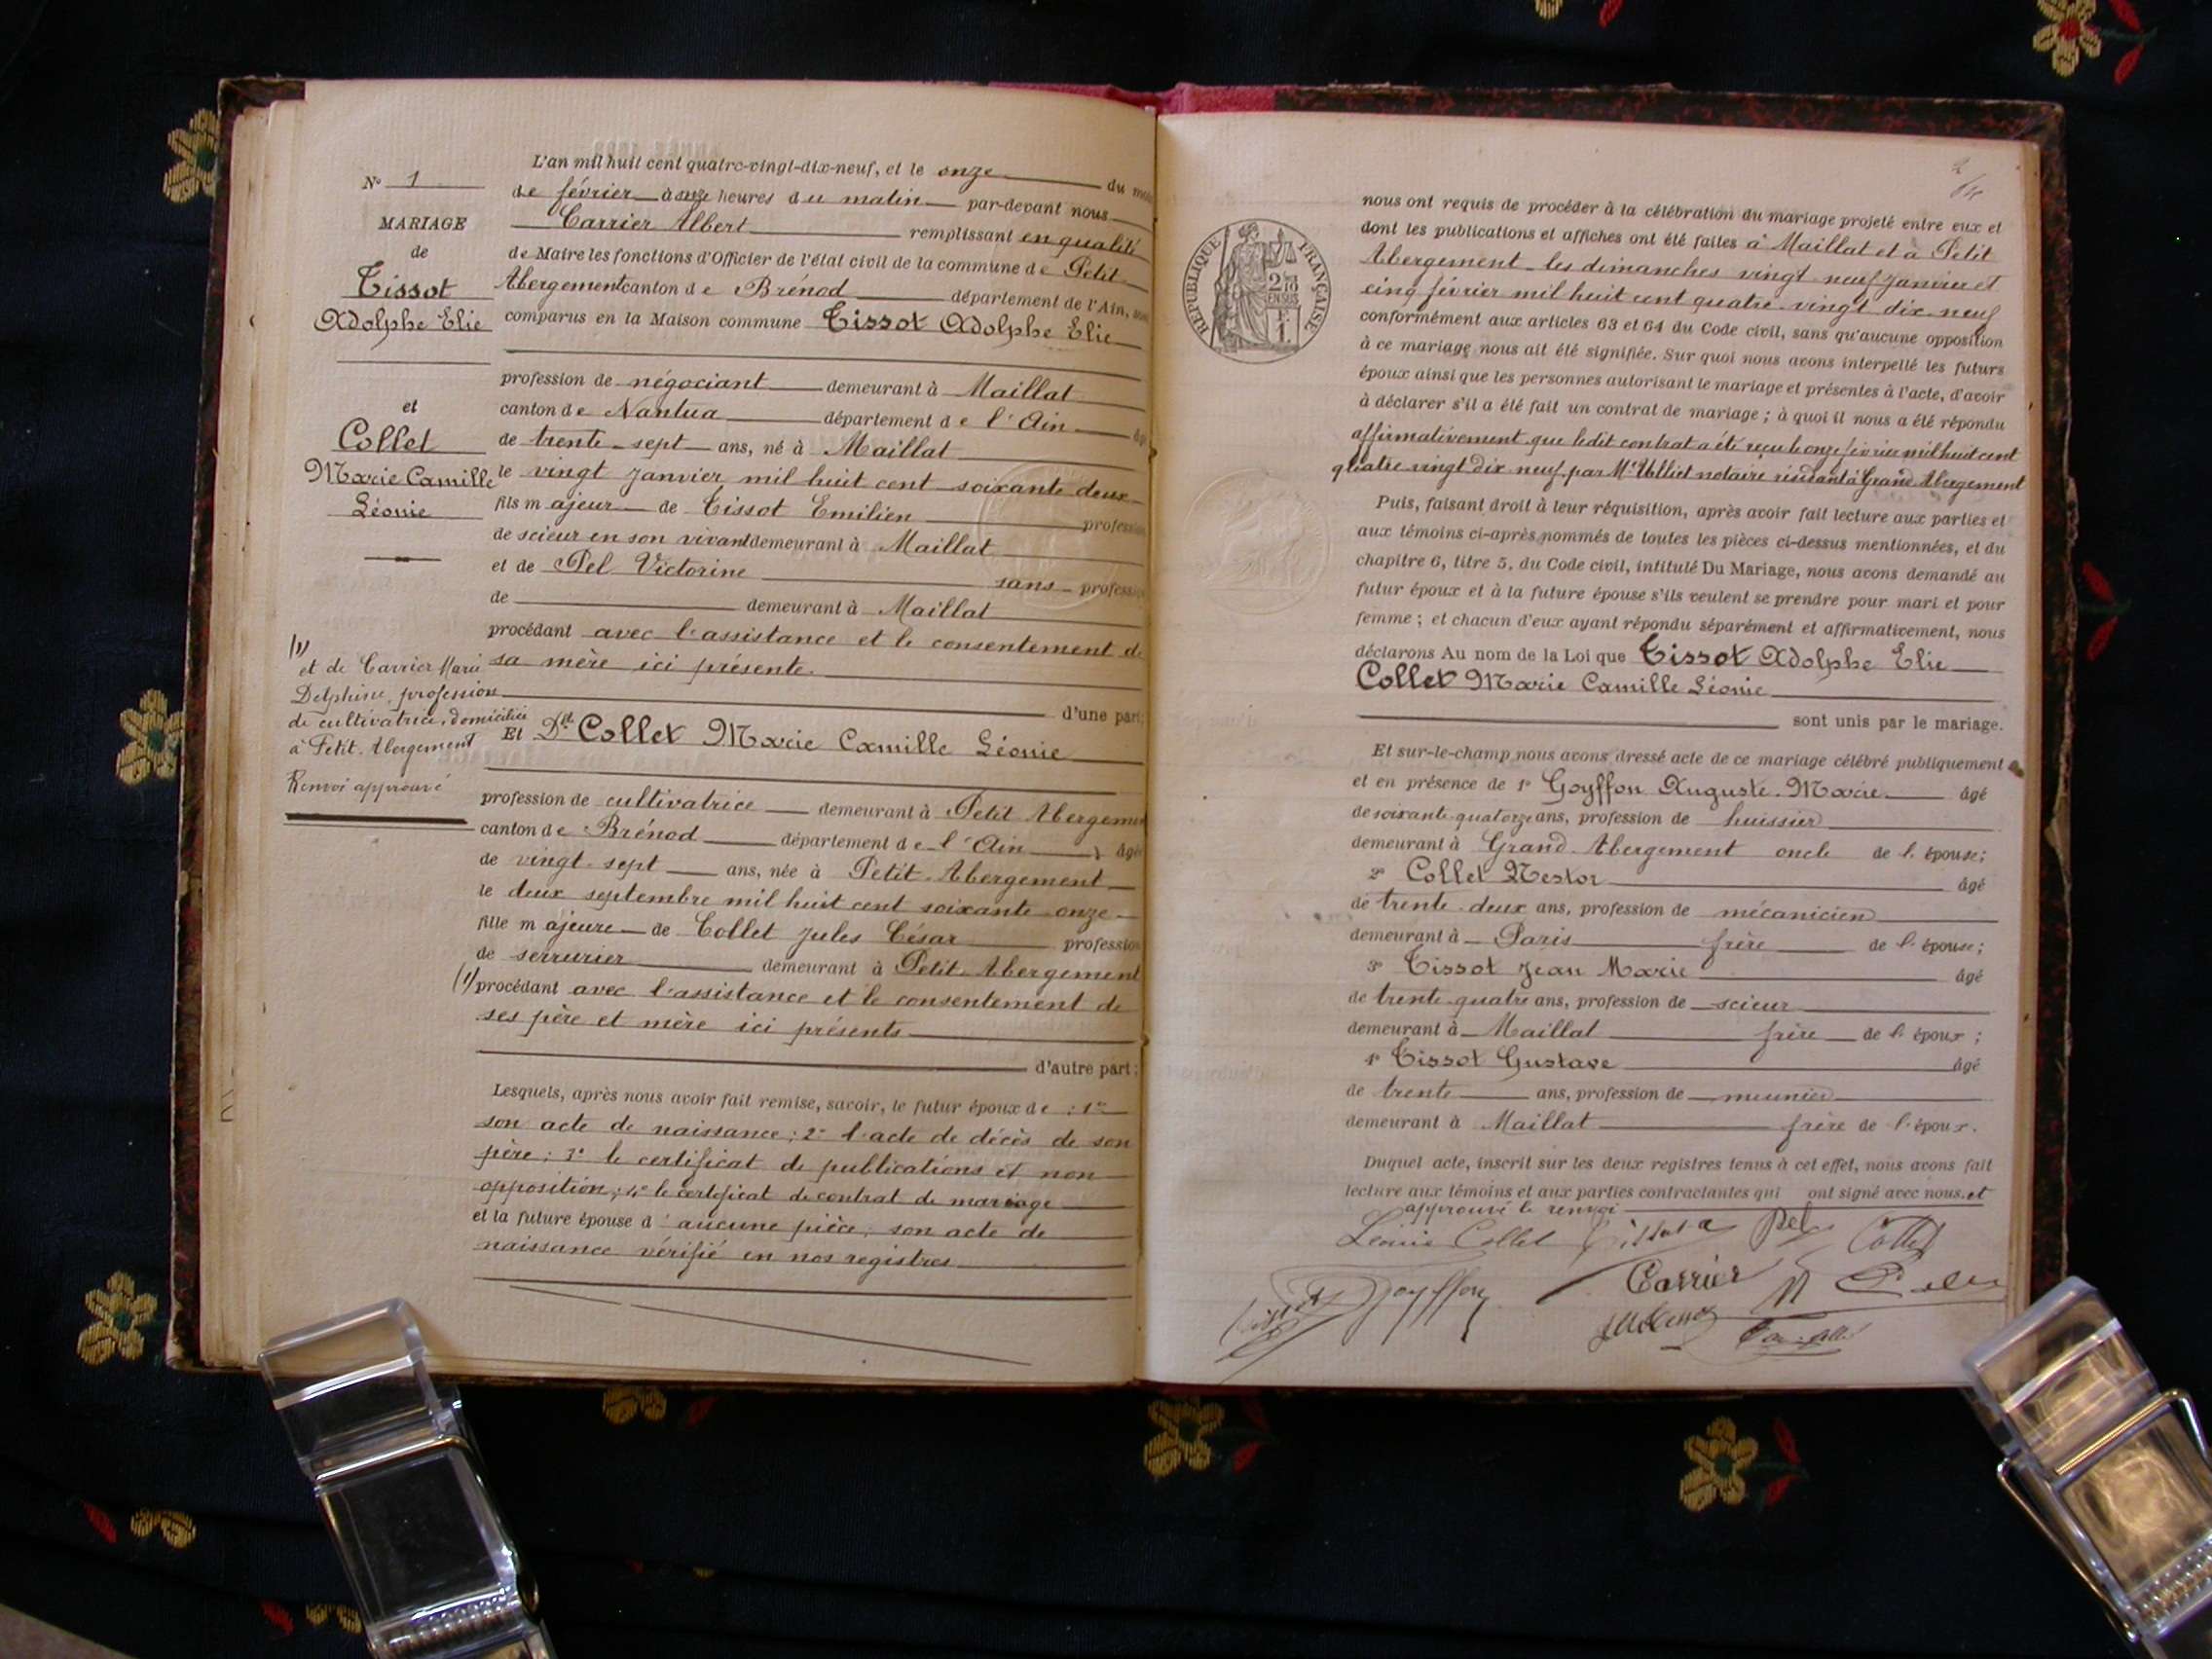 N° 1
MARIAGE
de
Tissot
Adolphe Elie
et
Collet
Marie Camille
Léonie
(1)
et de Carrier Marie
Delphine, profession
de cultivatrice, domiciliée
à Petit-Abergement
Renvoi approuvé
L'an mil huit cent quatre-vingt-dix-neuf, et le onze du mois
de février à onze heures du matin par-devant nous
Carrier Albert remplissant en qualité
de Maire les fonctions d'Officier de l'état civil de la commune de Petit-
Abergement canton de Brénod département de l'Ain, sont
comparus en la Maison commune Tissot Adolphe Elie
profession de négociant demeurant à Maillat
canton de Nantua département de l'Ain âgé
de trente-sept ans, né à Maillat
le vingt janvier mil huit cent soixante deux
fils majeur de Tissot Emilien profession
de scieur en son vivant demeurant à Maillat
et de Pel Victorine sans profession
de demeurant à Maillat
procédant avec l'assistance et le consentement de
sa mère ici présente.
d'une part;
Et Dlle Collet Marie Camille Léonie
profession de cultivatrice demeurant à Petit Abergement
canton de Brénod département de l'Ain âgée
de vingt-sept ans, née à Petit-Abergement
le deux septembre mil huit cent soixante-onze
fille majeure de Collet Jules César profession
de serrurier demeurant à Petit-Abergement
(1) procédant avec l'assistance et le consentement de
ses père et mère ici présents
d'autre part;
Lesquels, après nous avoir fait remise, savoir, le futur époux de : 1°
son acte de naissance; 2° l'acte de décès de son
père; 3° le certificat de publications et non
opposition; 4° le certificat de contrat de mariage
et la future épouse d'aucune pièce; son acte de
naissance vérifié en nos registres
RÉPUBLIQUE FRANÇAISE
2/10
EN SUS
nous ont requis de procéder à la célébration du mariage projeté entre eux et
dont les publications et affiches ont été faites à Maillat et à Petit
Abergement les dimanches vingt-neuf janvier et
cinq février mil huit cent quatre-vingt-dix-neuf
conformément aux articles 63 et 64 du Code civil, sans qu'aucune opposition
à ce mariage nous ait été signifiée. Sur quoi nous avons interpellé les futurs
époux ainsi que les personnes autorisant le mariage et présentes à l'acte, d'avoir
à déclarer s'il a été fait un contrat de mariage; à quoi il nous a été répondu
affirmativement que ledit contrat a été reçu le onze février mil huit cent
quatre vingt dix neuf par Me notaire résidant à Grand Abergement
Puis, faisant droit à leur réquisition, après avoir fait lecture aux parties et
aux témoins ci-après nommés de toutes les pièces ci-dessus mentionnées, et du
chapitre 6, titre 5, du Code civil, intitulé Du Mariage, nous avons demandé au
futur époux et à la future épouse s'ils veulent se prendre pour mari et pour
femme; et chacun d'eux ayant répondu séparément et affirmativement, nous
déclarons Au nom de la Loi que Tissot Adolphe Elie
Collet Marie Camille Léonie
sont unis par le mariage.
Et sur-le-champ nous avons dressé acte de ce mariage célébré publiquement
et en présence de 1° Goyffon Auguste-Marie âgé
de soixante-quatorze ans, profession de huissier
demeurant à Grand-Abergement oncle de l'épouse;
2° Collet Nestor âgé
de trente-deux ans, profession de mécanicien
demeurant à Paris frère de l'épouse;
3° Tissot Jean Marie âgé
de trente-quatre ans, profession de scieur
demeurant à Maillat frère de l'époux;
4° Tissot Gustave âgé
de trente ans, profession de meunier
demeurant à Maillat frère de l'époux.
Duquel acte, inscrit sur les deux registres tenus à cet effet, nous avons fait
lecture aux témoins et aux parties contractantes qui ont signé avec nous et
approuvé le renvoi
Léonie Collet Tissot a Pel Collet
Goyffon Carrier